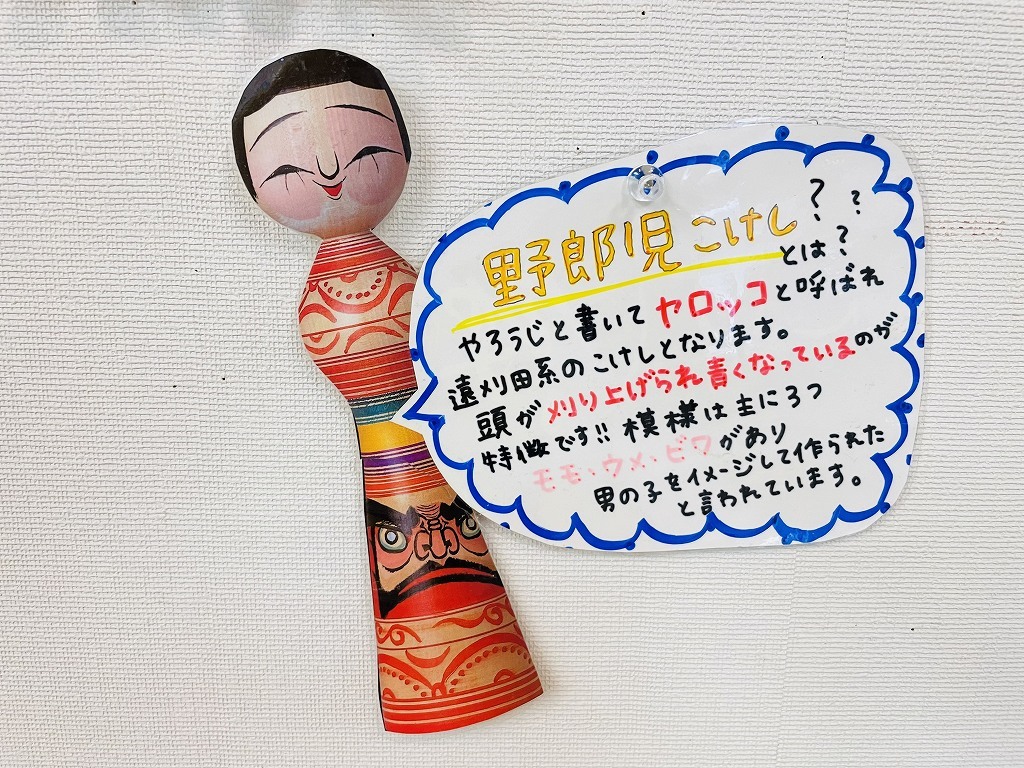 野郎児こけしとは???
やろうじと書いてヤロッコと呼ばれ
遠刈田系のこけしとなります。
頭が刈り上げられ青くなっているのが
特徴です!!模様は主に3つ
モモ・ウメ・ビワがあり
男の子をイメージして作られた
と言われています。